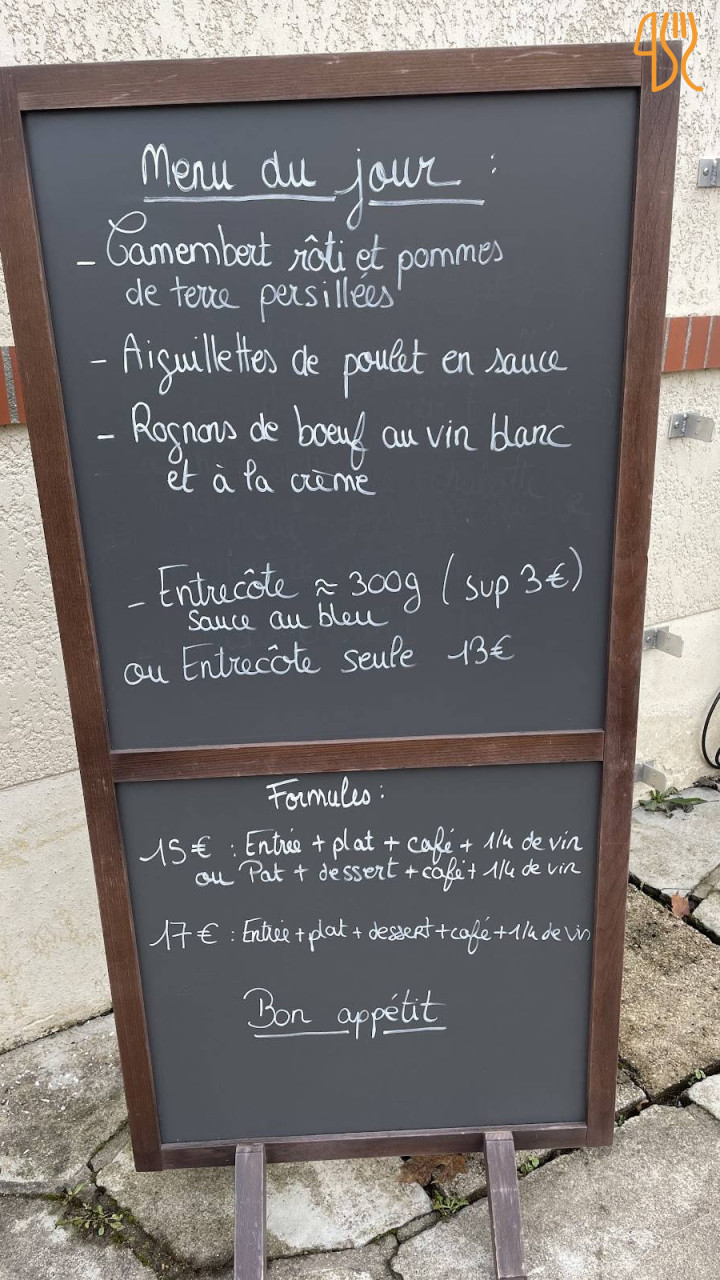 Menu du jour :
- Camembert rôti et pommes
de terre persillées
- Aiguillettes de poulet en sauce
- Rognons de boeuf au vin blanc
et à la crème
- Entrecôte ≈ 300g (sup 3€)
sauce au bleu
ou Entrecôte seule 13€
Formules :
15€ : Entrée + plat + café + 1/4 de vin
ou Pat + dessert + café + 1/4 de vin
17€ : Entrée + plat + dessert + café + 1/4 de vin
Bon appétit